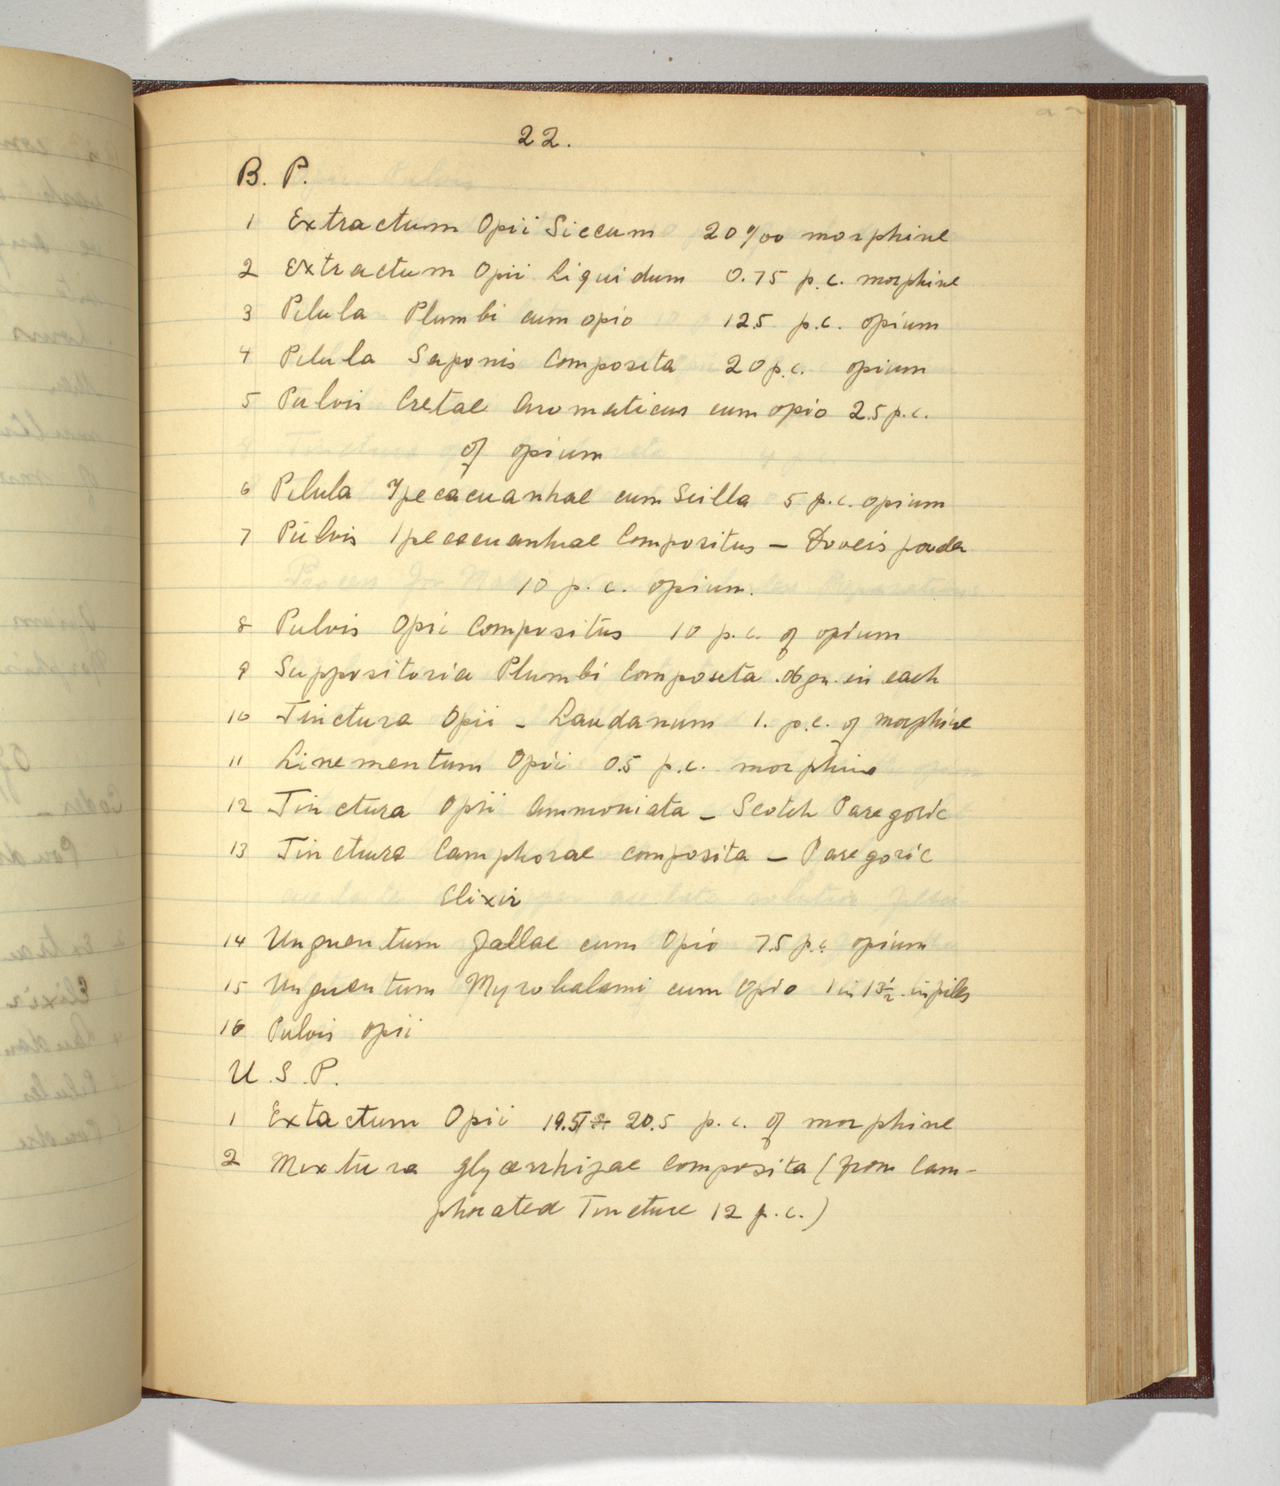 22.
B. P.
1 Extractum Opii Siccum 20 % morphine
2 Extractum Opii Liquidum 0.75 p.c. morphine
3 Pilula Plumbi cum opio 12.5 p.c. opium
4 Pilula Saponis Composita 20 p.c. opium
5 Pulvis Cretae Aromaticus cum opio 2.5 p.c.
of opium
6 Pilula Ipecacuanhae cum Scilla 5 p.c. opium
7 Pulvis Ipecacuanhae Compositus – Dovers powder
10 p. c. opium.
8 Pulvis Opii Compositus 10 p.c. of opium
9 Suppositoria Plumbi Composita .06 gm. in each
10 Tinctura Opii – Laudanum 1. p.c. of morphine
11 Linementum Opii 0.5 p.c. morphine
12 Tinctura Opii Ammoniata – Scotch Paregoric
13 Tinctura Camphorae composita – Paregoric
Elixir
14 Unguentum Gallae cum Opio 7.5 p.c opium
15 Unguentum Myrobalami cum Opio 1 in 13½ in piles
16 Pulvis opii
U. S. P.
1 Extactum Opii 19.5 20.5 p.c. of morphine
2 Mixtura glycerrhizae Composita (from Cam-
phorated Tincture 12 p.c.)